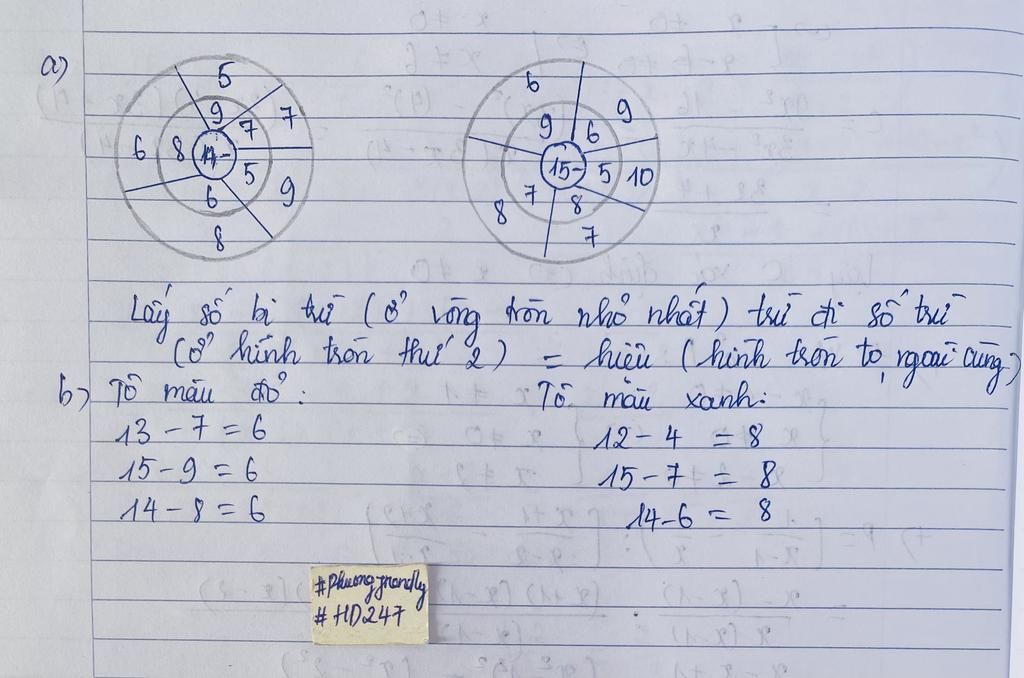 a)
5
9 7 7
6 8 14- 5 9
6
8
6 9
9 6
15- 5 10
8 7 8
7
Lấy số bị trừ (ở vòng tròn nhỏ nhất) trừ đi số trừ
(ở hình tròn thứ 2) = hiệu (hình tròn to, ngoài cùng)
b) Tô màu đỏ: Tô màu xanh:
13 - 7 = 6 12 - 4 = 8
15 - 9 = 6 15 - 7 = 8
14 - 8 = 6 14 - 6 = 8
#HD247